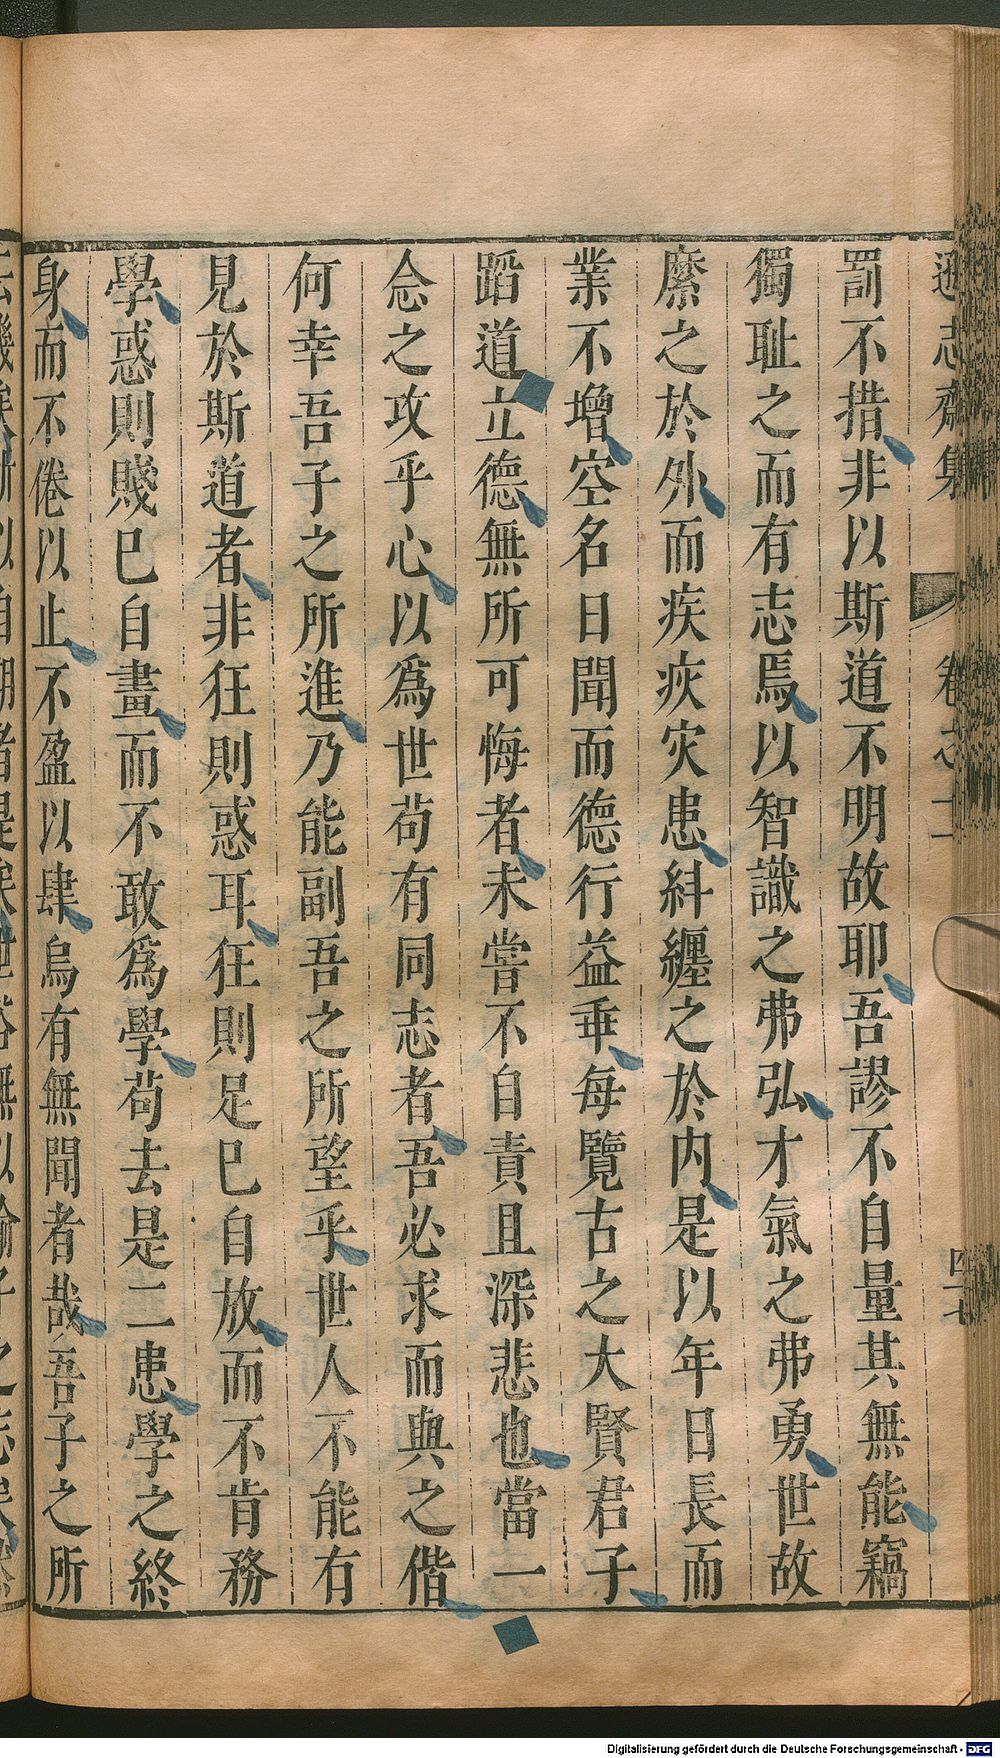 遜志齋集
卷之十一
四十七
罰不措非以斯道不明故耶吾謬不自量其無能竊
獨耻之而有志焉以智識之弗弘才氣之弗勇世故
縻之於外而疾疢灾患紏纏之於内是以年日長而
業不增空名日聞而德行益乖每覽古之大賢君子
蹈道立德無所可悔者未嘗不自責且深悲也當一
念之攻乎心以爲世苟有同志者吾必求而與之偕
何幸吾子之所進乃能副吾之所望乎世人不能有
見於斯道者非狂則惑耳狂則足已自放而不肯務
學惑則賤已自畫而不敢爲學苟去是二患學之終
身而不倦以止不盈以肆烏有無聞者哉吾子之所
Digitalisierung gefördert durch die Deutsche Forschungsgemeinschaft - DFG